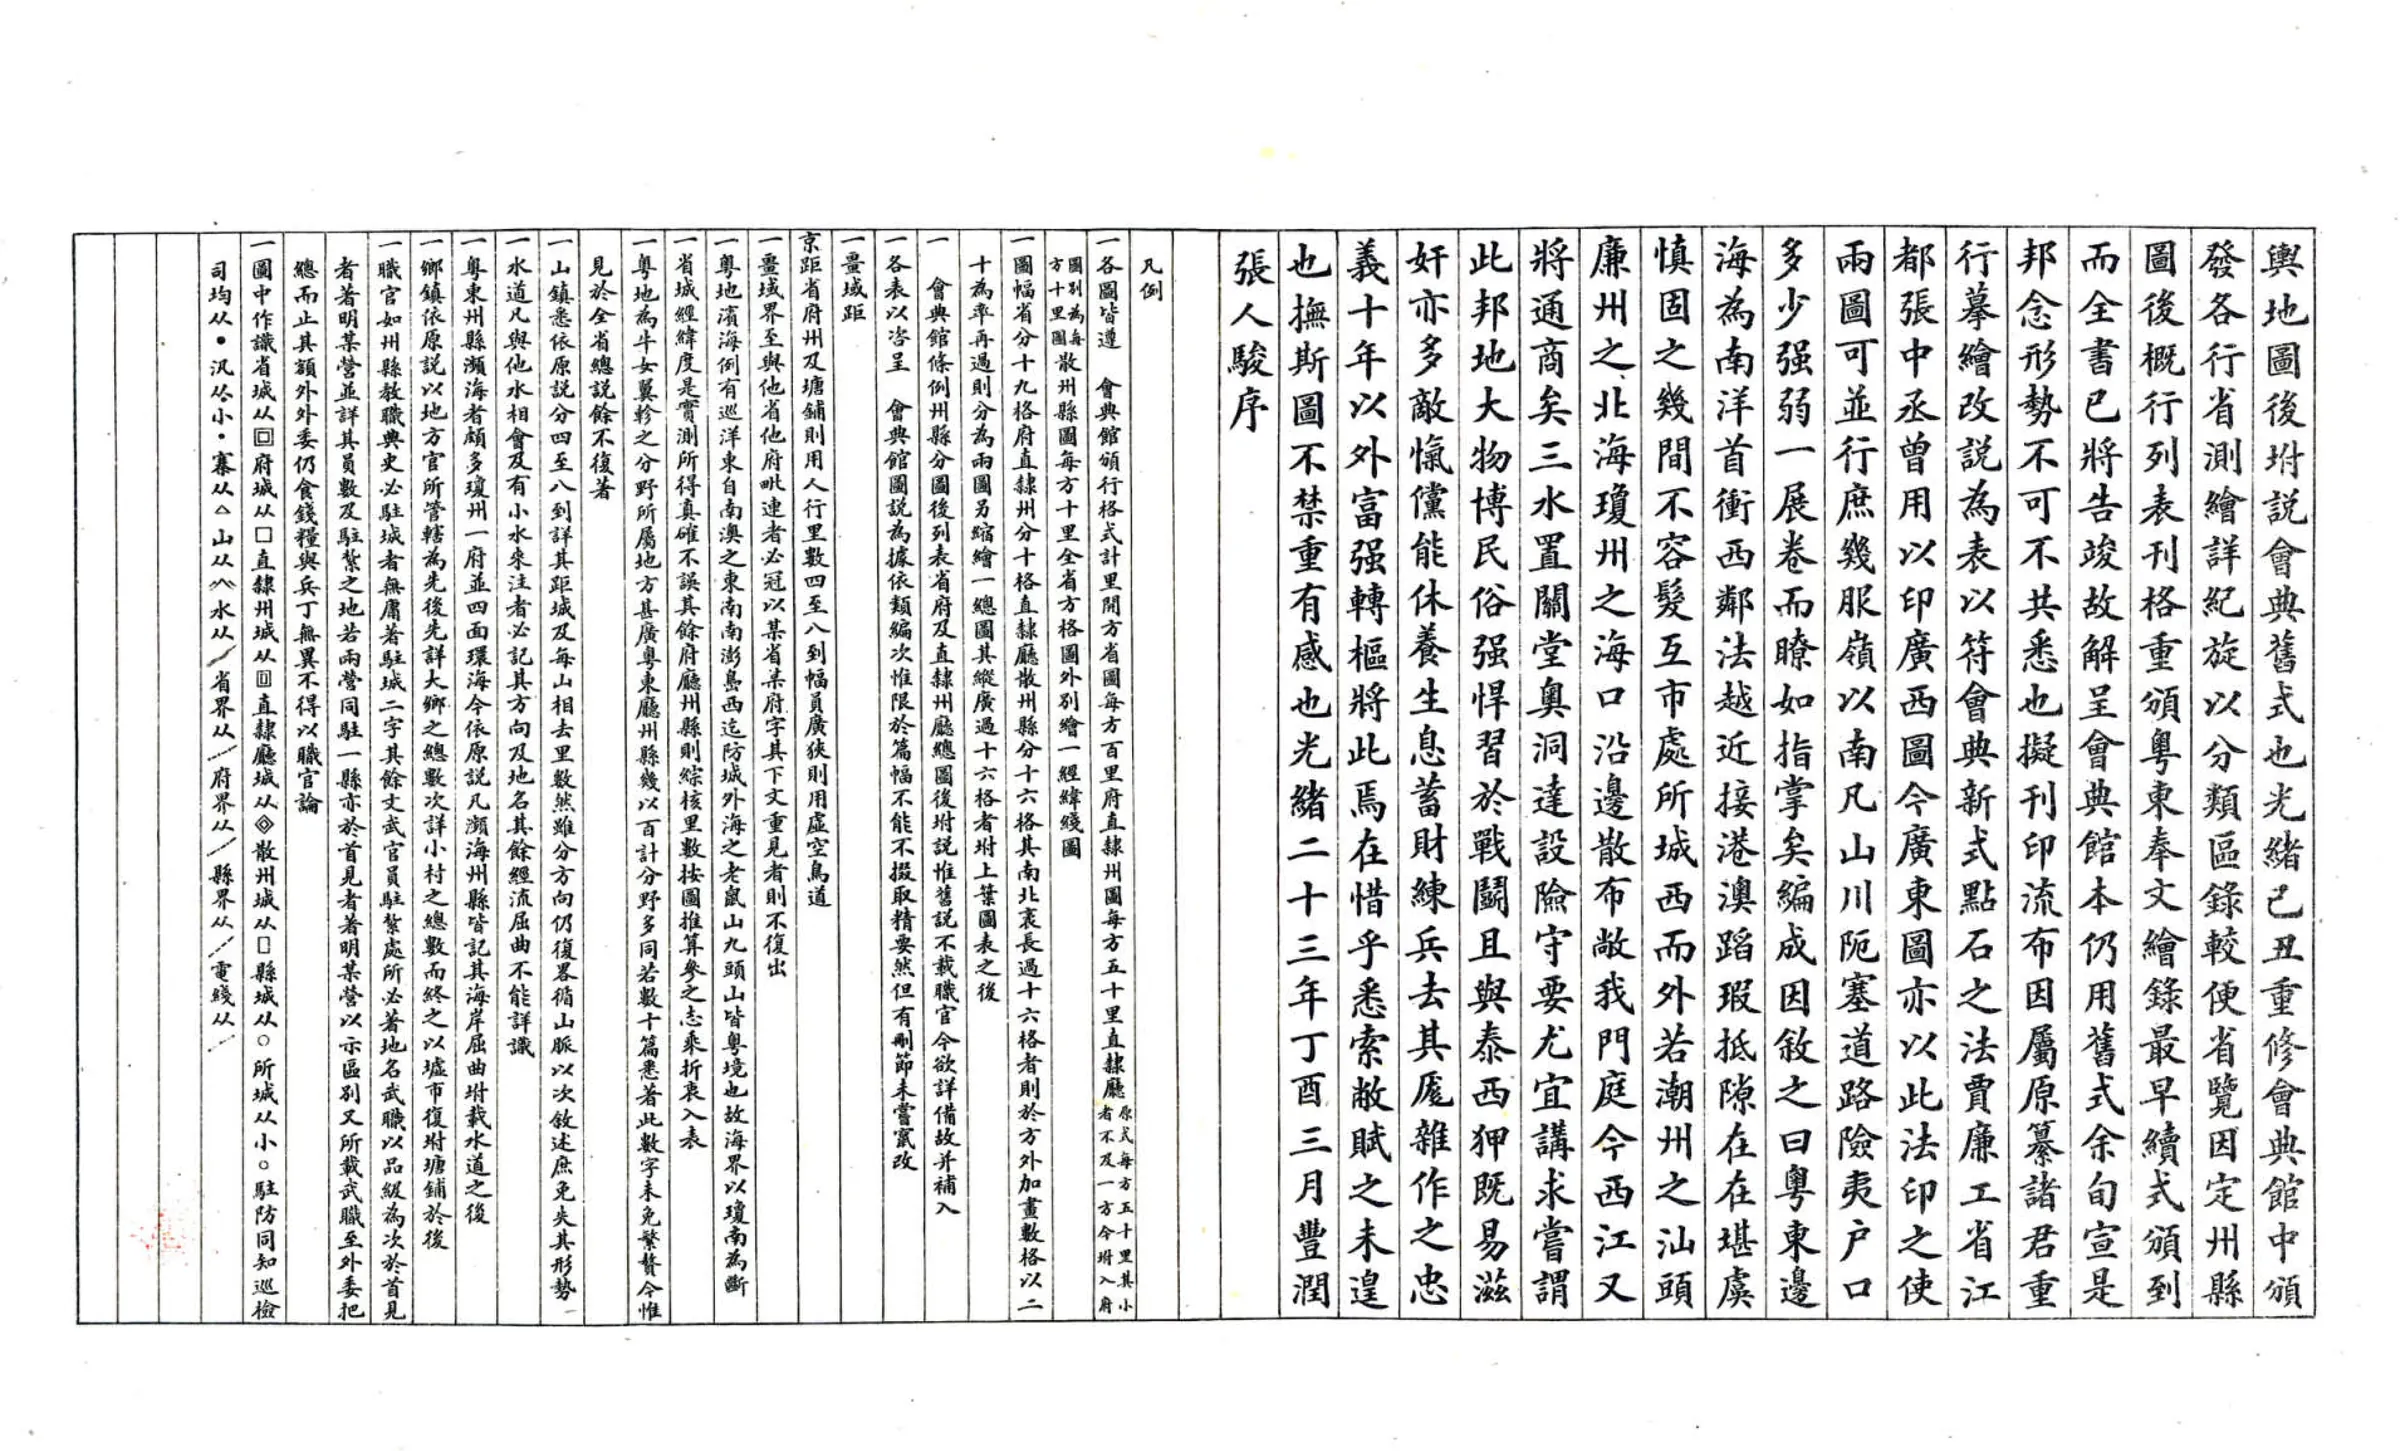 輿地圖後坿説會典舊式也光緒己丑重修會典館中頒
發各行省測繪詳紀旋以分類區錄較便省覽因定州縣
圖後概行列表刊格重頒粵東奉文繪錄最早續式頒到
而全書已將告竣故解呈會典館本仍用舊式余旬宣是
邦念形勢不可不共悉也擬刊印流布因屬原纂諸君重
行摹繪改説為表以符會典新式點石之法賈廉工省江
都張中丞曾用以印廣西圖今廣東圖亦以此法印之使
兩圖可並行庶幾服嶺以南凡山川阨塞道路險夷户口
多少强弱一展卷而瞭如指掌矣編成因敘之曰粵東邊
海為南洋首衝西鄰法越近接港澳蹈瑕抵隙在在堪虞
慎固之幾間不容髮互市處所城西而外若潮州之汕頭
廉州之北海瓊州之海口沿邊散布敞我門庭今西江又
將通商矣三水置關堂奧洞達設險守要尤宜講求嘗謂
此邦地大物博民俗强悍習於戰鬭且與泰西狎既易滋
奸亦多敵愾儻能休養生息蓄財練兵去其尨雜作之忠
義十年以外富强轉樞將此焉在惜乎悉索敝賦之未遑
也撫斯圖不禁重有感也光緒二十三年丁酉三月豐潤
張人駿序
凡例
一各圖皆遵　會典館頒行格式計里開方省圖每方百里府直隸州圖每方五十里直隸廳原式每方五十里其小者不及一方今坿入府
圖別為每方十里圖散州縣圖每方十里全省方格圖外別繪一經緯綫圖
一圖幅省分十九格府直隸州分十格直隸廳散州縣分十六格其南北袤長過十六格者則於方外加畫數格以二
十為率再過則分為兩圖另縮繪一總圖其縱廣過十六格者坿上葉圖表之後
一　會典館條例州縣分圖後列表省府及直隸州廳總圖後坿説惟舊説不載職官今欲詳備故并補入
一各表以咨呈　會典館圖説為據依類編次惟限於篇幅不能不掇取精要然但有刪節未嘗竄改
一畺域距
京距省府州及塘鋪則用人行里數四至八到幅員廣狹則用虛空鳥道
一畺域界至與他省他府毗連者必冠以某省某府字其下文重見者則不復出
一粵地濱海例有巡洋東自南澳之東南南澎島西迄防城外海之老鼠山九頭山皆粵境也故海界以瓊南為斷
一省城經緯度是實測所得真確不誤其餘府廳州縣則綜核里數按圖推算參之志乘折衷入表
一粵地為牛女翼軫之分野所屬地方甚廣粵東廳州縣幾以百計分野多同若數十篇悉著此數字未免繁贅今惟
見於全省總説餘不復著
一山鎮悉依原説分四至八到詳其距城及每山相去里數然雖分方向仍復畧循山脈以次敘述庶免失其形勢
一水道凡與他水相會及有小水來注者必記其方向及地名其餘經流屈曲不能詳識
一粵東州縣瀕海者頗多瓊州一府並四面環海今依原説凡瀕海州縣皆記其海岸屈曲坿載水道之後
一鄉鎮依原説以地方官所管轄為先後先詳大鄉之總數次詳小村之總數而終之以墟市復坿塘鋪於後
一職官如州縣教職典史必駐城者無庸著駐城二字其餘文武官員駐紮處所必著地名武職以品級為次於首見
者著明某營並詳其員數及駐紮之地若兩營同駐一縣亦於首見者著明某營以示區別又所載武職至外委把
總而止其額外外委仍食錢糧與兵丁無異不得以職官論
一圖中作識省城从回府城从□直隸州城从回直隸廳城从◈散州城从▯縣城从○所城从小○駐防同知巡檢
司均从●汛从小•寨从△山从ᨓ水从╱省界从╱府界从╱縣界从╱電綫从╱